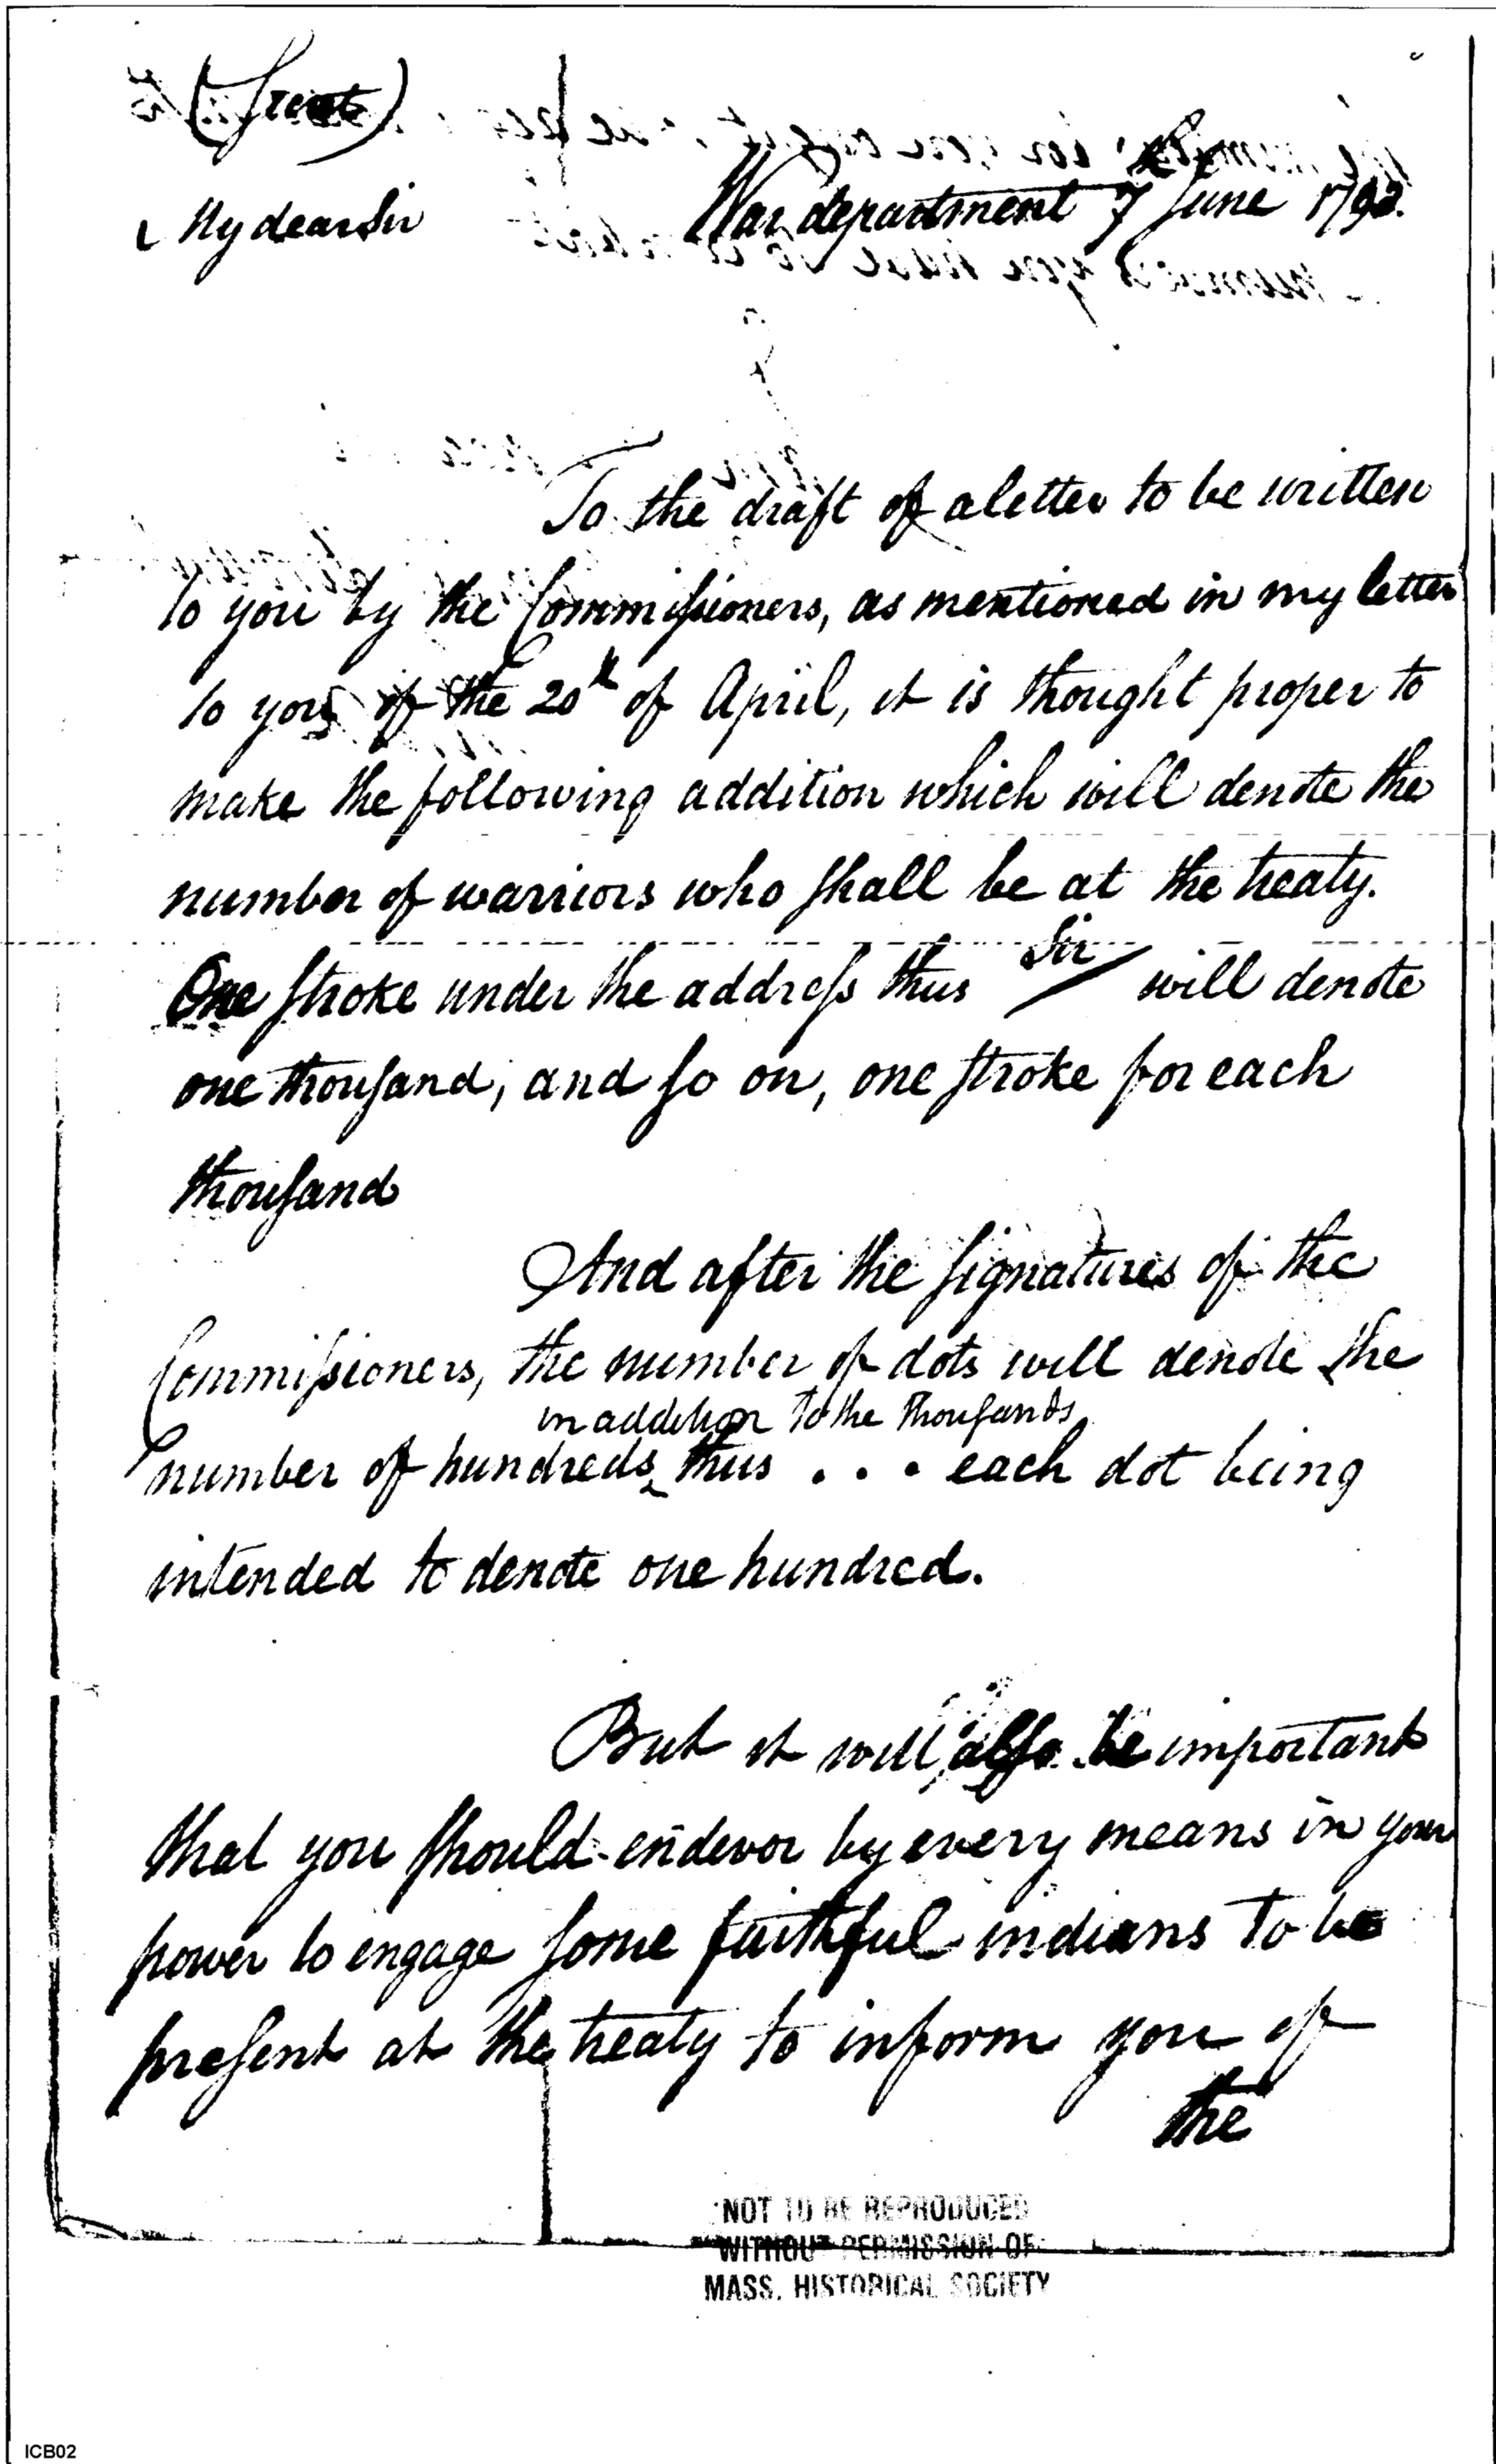 My dear Sir
War department 7 June 179
To the draft of a letter to be written
to you by the Commissioners, as mentioned in my letter
to you of the 20th of April, it is thought proper to
make the following addition which will denote the
number of warriors who shall be at the treaty.
One stroke under the address thus Sir / will denote
one thousand, and so on, one stroke for each
thousand
And after the signatures of the
Commissioners, the number of dots will denote the
in addition to the thousands
number of hundreds ‸ thus . . . each dot being
intended to denote one hundred.
But it will also be important
that you should endevor by every means in your
power to engage some faithful indians to be
present at the treaty to inform you of
the
NOT TO BE REPRODUCED
WITHOUT PERMISSION OF
MASS. HISTORICAL SOCIETY
ICB02